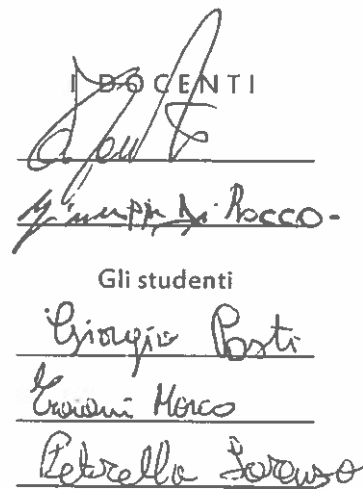 I DOCENTI
Giuseppe Di Rocco-
Gli studenti
Giorgio Posti
Marco
Petrella Lorenzo